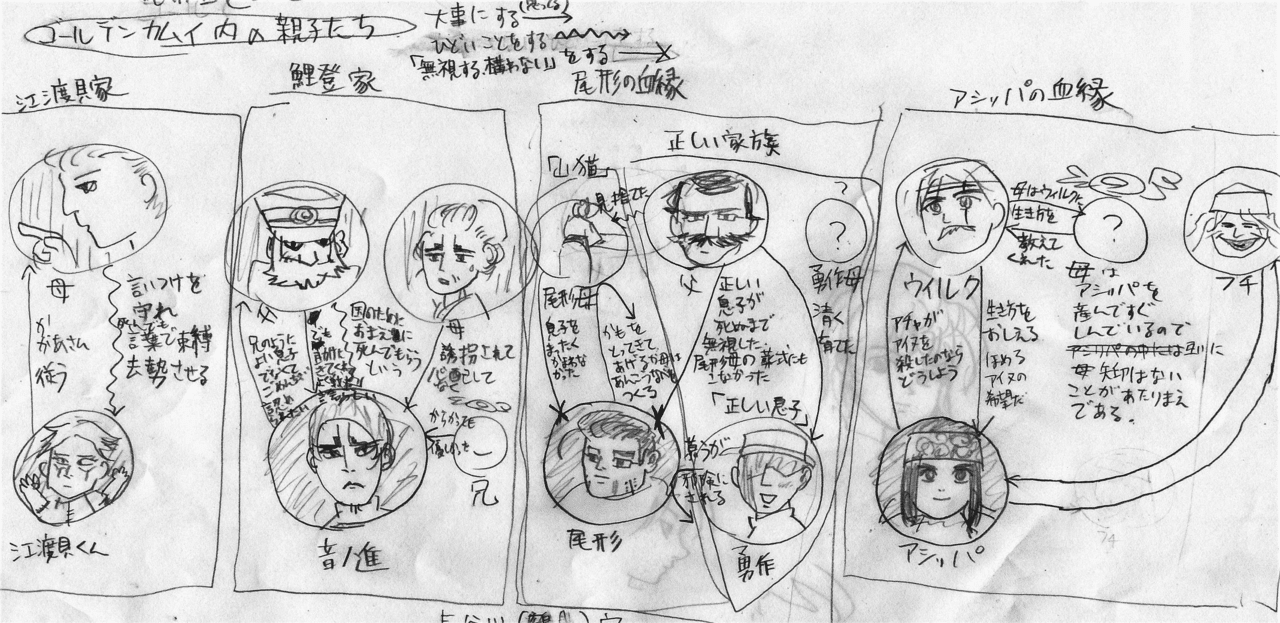 ゴールデンカムイ内の親子たち
大事にする
ひどいことをする
「無視する、構わない」をする
江渡貝家
母
かあさん
従う
言いつけを
守れ
言葉で束縛
去勢させる
江渡貝くん
鯉登家
父
兄のように
よい息子
国のために
おまえに
死んでもらう
という
母
誘拐されて
心配して
からかっても
優しかった
兄
音ノ進
尾形の血縁
「山猫」
見捨てた
正しい家族
尾形母
息子を
まったく
かもを
とってきて
あんこうなべを
つくる
父
正しい
息子が
死ぬまで
無視した。
尾形母の葬式にも
こなかった
?
?
勇作母
清く
育てた
「正しい息子」
慕うが
邪険に
される
尾形
勇作
アシㇼパの血縁
母はウイルクに
生き方を
教えて
くれた
?
ウイルク
アチャが
アイヌを
殺したのなら
どうしよう
生き方を
おしえる
ほめる
アイヌの
希望だ
母は
アシㇼパを
産んですぐ
しんでいるので
互いに
母矢印はない
ことがあたりまえ
である。
フチ
アシㇼパ